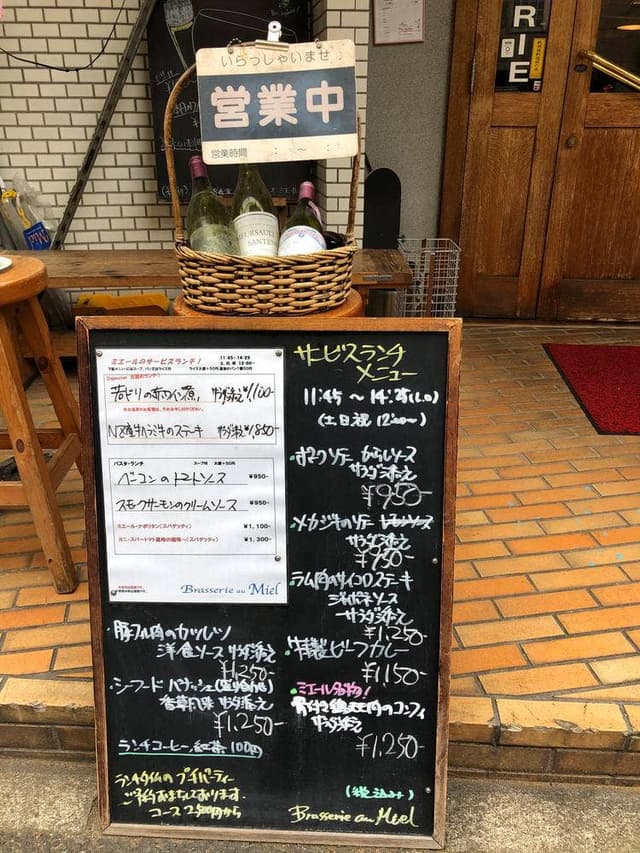 いらっしゃいませ
営業中
営業時間 : ～ :
RIE
MEURSAULT
SANTEN
ミエールのサービスランチ!
11:45-14:25
土、日、祝 12:00-
若どりの赤ワイン煮、 サラダ添え ¥1,100-
NZ産牛ハラミ牛のステーキ サラダ添え ¥1,850-
パスターランチ スープ付 大盛+50円
ベーコンのトマトソース ¥950-
スモークサーモンのクリームソース ¥950-
ミエール・ナポリタン(スパゲッティ) ¥1,100-
カニ・スパートマト風味の ¥1,300-
Brasserie au Miel
サービスランチ
メニュー
11:45 ～ 14:25(L.O)
(土日祝 12:00～)
・ポークソテー からしソース
サラダ添え
¥950-
・メカジキのソテー トマトソース
サラダ添え
¥950-
・ラム肉のサイコロステーキ
ジャポネソース
サラダ添え
¥1,250-
・牛製ビーフカレー
¥1150-
・ミエール名物!
骨付き鶏モモ肉のコンフィ
サラダ添え
¥1,250-
(税込み)
Brasserie au Miel
・豚フィレ肉のカツレツ
洋食ソース サラダ添え
¥1,250-
・シーフード バナッシェ(盛り合わせ)
香草風味 サラダ添え
¥1,250-
ランチコーヒー、紅茶 100円
ランチタイムのプチパーティー
ご予約おまちしております。
コース 2500円から